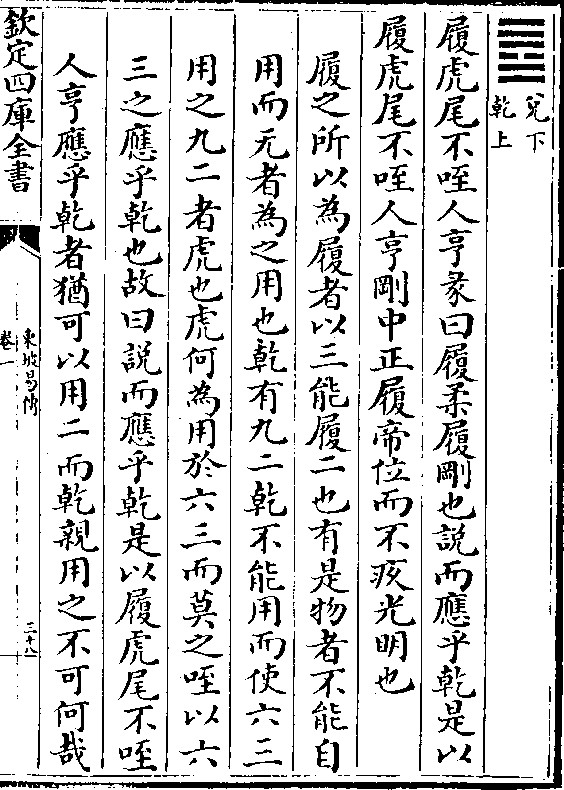 兌下
乾上
履虎尾不咥人亨彖曰履柔履剛也說而應乎乾是以
履虎尾不咥人亨剛中正履帝位而不疚光明也
履之所以為履者以三能履二也有是物者不能自
用而无者為之用也乾有九二乾不能用而使六三
用之九二者虎也虎何為用於六三而莫之咥以六
三之應乎乾也故曰說而應乎乾是以履虎尾不咥
人亨應乎乾者猶可以用二而乾親用之不可何哉
欽定四庫全書
東坡易傳
卷一
三十八